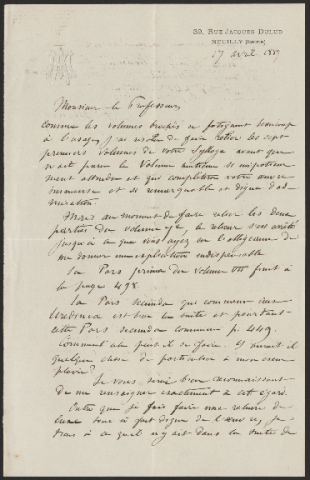 39, RUE JACQUES DULUD
NEUILLY (SEINE)
17 avril 1889
Monsieur le Professeur,
Comme les volumes brochés se fatiguent beaucoup
à l'usage, j'ai résolu de faire relier les sept
premiers volumes de votre Sylloge avant que
n'ait paru le Volume huitième si impatiem
ment attendu et qui complètera votre œuvre
immense et si remarquable et digne d'ad
miration.
Mais au moment de faire relier les deux
parties du volume 7e, le relieur s'est arrêté
jusqu'à ce que vous ayez eu l'obligeance de
me donner une explication indispensable.
La Pars prima du volume VII finit à
la page 498.
La Pars secunda qui commence
Uredineæ est bien la suite et pourtant
cette Pars secunda commence p. 449.
Comment cela peut il se faire. Y aurait il
quelque chose de particulier à mon exem
plaire?
Je vous serai bien reconnaissant
de me renseigner exactement à cet égard.
Outre que je fais faire une reliure de
luxe tout à fait digne de l'œuvre, je
tiens à ce qu'il n'y ait dans la suite de